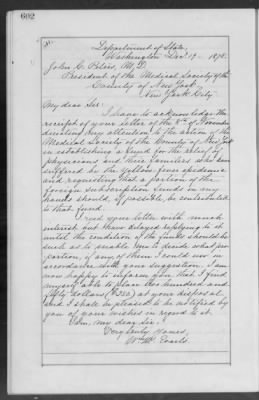 602
Department of State,
Washington Dec. 19. 1878.
John C. Peters, M.D.
President of the Medical Society of the
County of New York,
New York City.
My dear Sir:
I have to acknowledge the
receipt of your letter of the 8th of November
directing my attention to the action of the
Medical Society of the County of New York
in establishing a fund for the relief of
physicians and their families who have
suffered by the Yellow fever epidemic
and requesting that a portion of the
foreign subscription funds in my
hands should, if possible, be contributed
to that fund.
I read your letter with much
interest, but have delayed replying to it
until the condition of the funds should be
such as to enable me to decide what pro
portion, if any, of them I could use in
accordance with your suggestion. I am
now happy to inform you that I find
myself able to place two hundred and
fifty dollars ($250) at your disposal
and I shall be pleased to be notified by
you of your wishes in regard to it.
I am, my dear Sir,
Very truly yours,
Wm. M. Evarts.